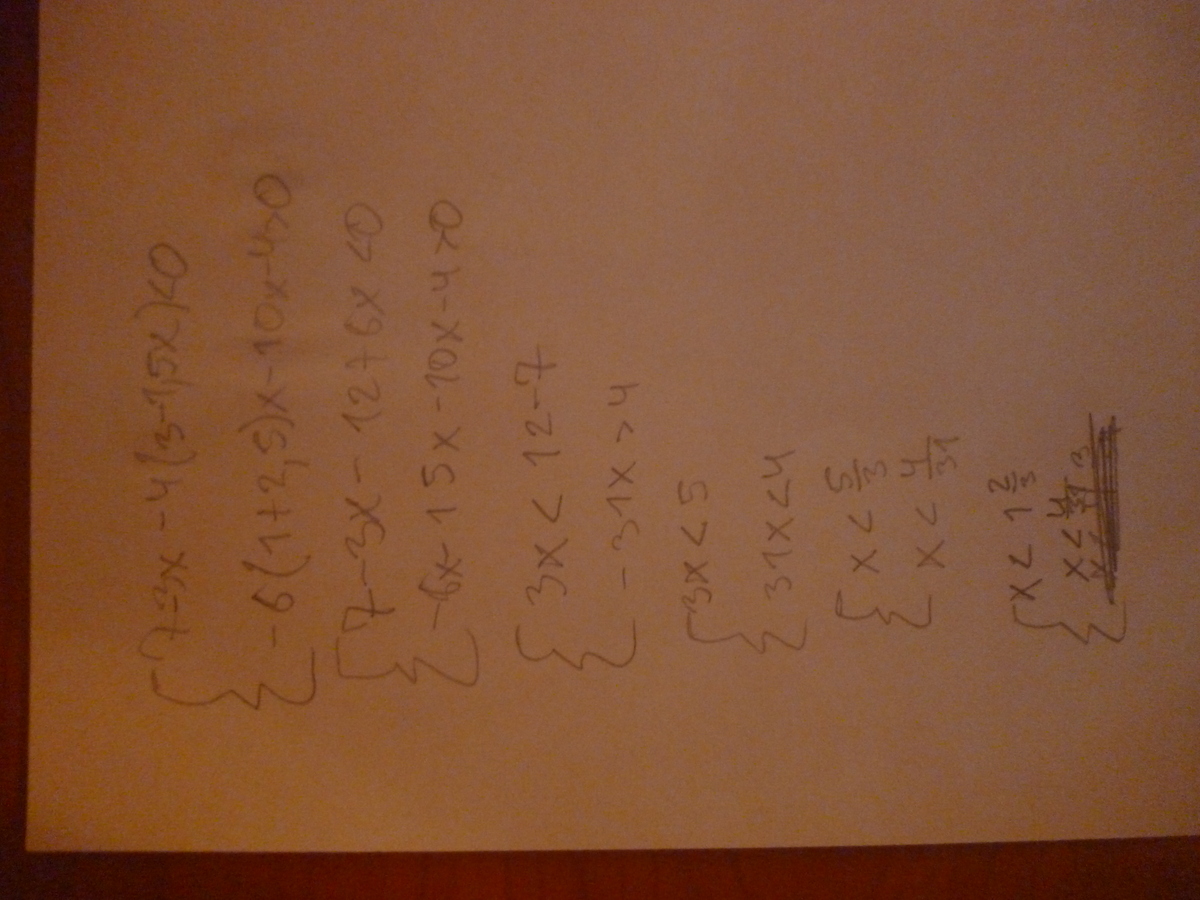 7-3x-4(3-1,5x)<0
-6(1+2,5)x-10x-4>0
7-3x-12+6x<0
-6x-15x-10x-4>0
3x<12-7
-31x>4
3x<5
31x<4
x<5/3
x<4/31
x<1 2/3
x<4/31